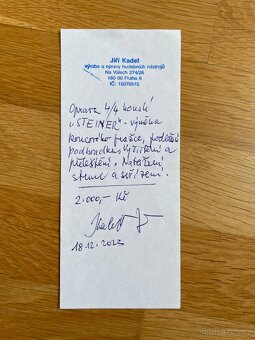 Jiří Kadet
výroba a opravy hudebních nástrojů
Na Valech 274/26
160 00 Praha 6
IČ: 15078515
Oprava 4/4 houslí
"STEINER" - výměna
koncového pražce, podložení
podbradku, vyčištění a
přeleštění. Natažení
strun a seřízení.
2.000,- Kč
18.12.2023